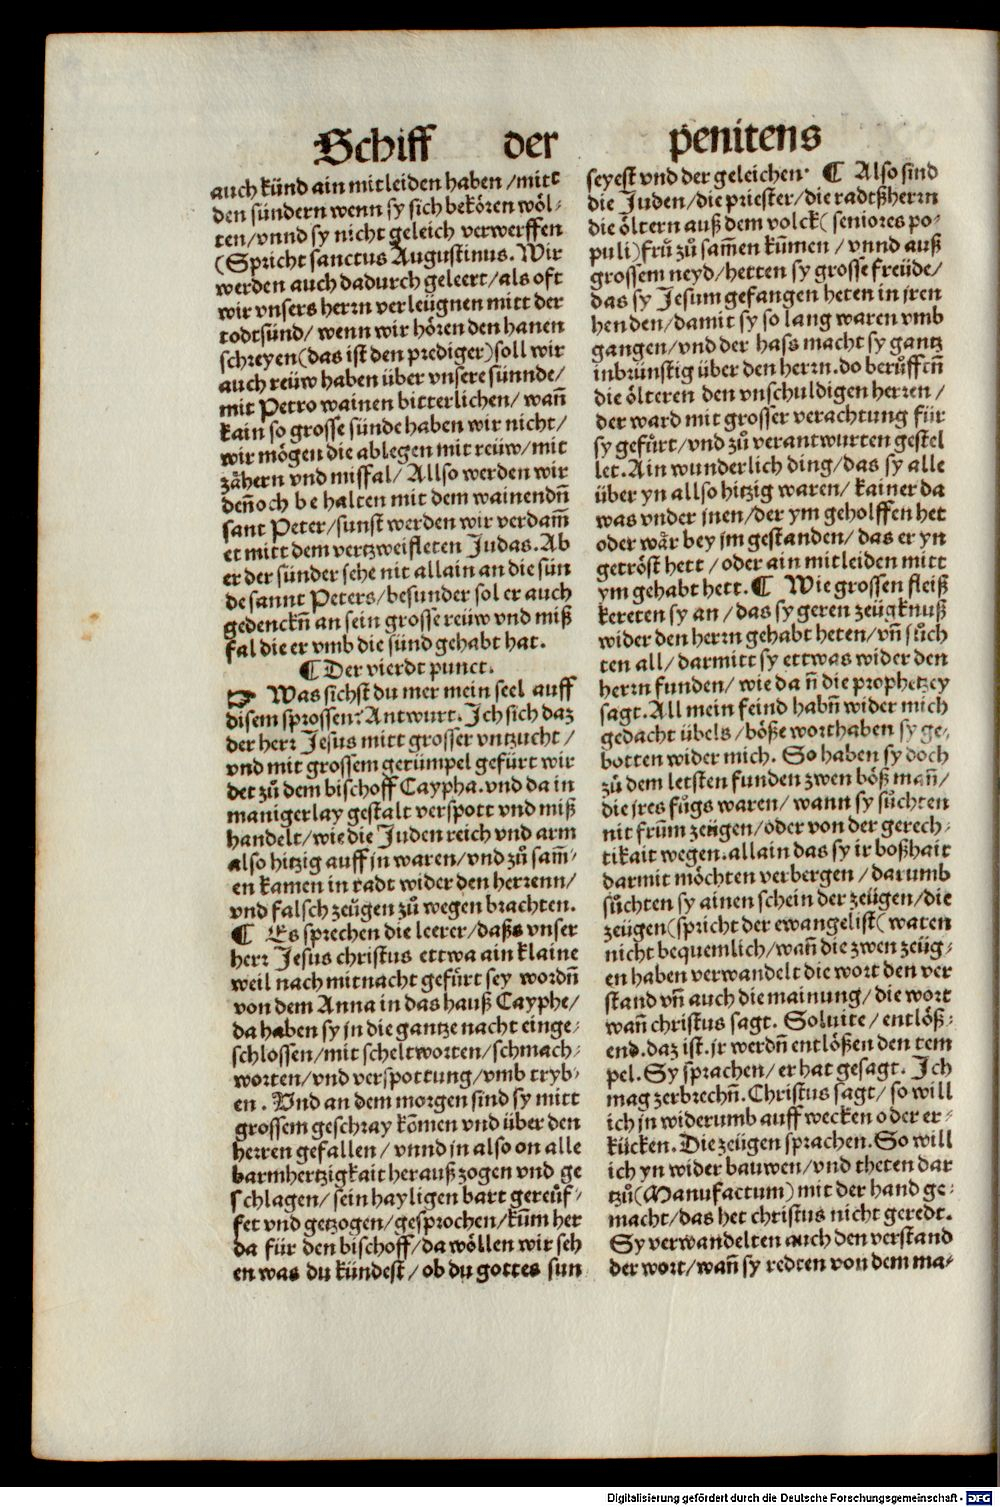 Schiff der penitens
auch künd ain mitleiden haben /mitt
den sündern wenn sy sich bekören wöl⸗
ten/vnnd sy nicht geleich verwerffen
(Spricht sanctus Augustinus. Wir
werden auch dadurch geleert/als oft
wir vnsers herrn verleügnen mitt der
todtsünd/ wenn wir hören den hanen
schreyen(das ist den prediger)soll wir
auch reüw haben über vnsere sünnde/
mit Petro wainen bitterlichen/ wañ
kain so grosse sünde haben wir nicht/
wir mögen die ablegen mit reüw/mit
zähern vnd missfal/ Allso werden wir
deñoch be halten mit dem wainendñ
sant Peter/sunst werden wir verdam̄
et mitt dem vertzweifleten Judas. Ab
er der sünder sehe nit allain an die sün
de sannt Peters/besunder sol er auch
gedenckñ an sein grosse reüw vnd miß
fal die er vmb die sünd gehabt hat.
¶ Der vierdt punct.
Was sichst du mer mein seel auff
disem sprossen? Antwurt. Ich sich daz
der herr Jesus mitt grosser vntzucht/
vnd mit grossem gerümpel gefürt wir
det zů dem bischoff Caypha. vnd da in
manigerlay gestalt verspott vnd miß
handelt/wie die Juden reich vnd arm
also hitzig auff jn waren/vnd zů sam̄⸗
en kamen in radt wider den herrenn/
vnd falsch zeügen zů wegen brachten.
¶ Es sprechen die leerer/daßs vnser
herr Jesus christus ettwa ain klaine
weil nach mitnacht gefürt sey wordñ
von dem Anna in das hauß Cayphe/
da haben sy jn die gantze nacht einge⸗
schlossen/mit scheltworten/schmach⸗
worten/vnd verspottung/vmb tryb⸗
en. Vnd an dem morgen sind sy mitt
grossem geschray kōmen vnd über den
herren gefallen/ vnnd jn also on alle
barmhertzigkait herauß zogen vnd ge
schlagen/ sein hayligen bart gereüf⸗
fet vnd getzogen/gesprochen/kum̄ her
da für den bischoff/da wöllen wir seh
en was du kündest/ ob du gottes sun
seyest vnd der geleichen. ¶ Also sind
die Juden/die priester/die radtßherrn
die öltern auß dem volck( seniores po⸗
puli)frů zů sam̄en kum̄en / vnnd auß
grossem neyd/hetten sy grosse freüde/
das sy Jesum gefangen heten in jren
henden/damit sy so lang waren vmb
gangen/vnd der hass macht sy gantz
inbrünstig über den herrn. do berůfftñ
die ölteren den vnschuldigen herren/
der ward mit grosser verachtung für
sy gefürt/vnd zů verantwurten gestel
let. Ain wunderlich ding/das sy alle
über yn allso hitzig waren/ kainer da
was vnder jnen/der ym geholffen het
oder wär bey jm gestanden/ das er yn
getröst hett/oder ain mitleiden mitt
ym gehabt hett. ¶ Wie grossen fleiß
kereten sy an/das sy geren zeügknuß
wider den herrn gehabt heten/vñ sůch
ten all/ darmitt sy ettwas wider den
herrn funden/ wie da ñ die prophetzey
sagt. All mein feind habñ wider mich
gedacht übels/böße wort haben sy ge⸗
botten wider mich. So haben sy doch
zů dem letsten funden zwen böß mañ/
die jres fůgs waren/ wann sy sůchten
nit frum̄ zeügen/oder von der gerech⸗
tikait wegen. allain das sy ir boßhait
darmit möchten verbergen/darumb
sůchten sy ainen schein der zeügen/die
zeügen(spricht der ewangelist( waren
nicht bequemlich/wañ die zwen zeüg⸗
en haben verwandelt die wort den ver
stand vñ auch die mainung/die wort
wañ christus sagt. Soluite/entlöß⸗
end. daz ist. jr werdñ entlößen den tem
pel. Sy sprachen/er hat gesagt. Ich
mag zerbrechñ. Christus sagt/ so will
ich jn widerumb auff wecken oder er⸗
kücken. Die zeügen sprachen. So will
ich yn wider bauwen/vnd theten dar
tzů(Manufactum)mit der hand ge⸗
macht/das het christus nicht geredt.
Sy verwandelten auch den verstand
der wort/wañ sy redten von dem ma⸗
Digitalisierung gefördert durch die Deutsche Forschungsgemeinschaft - DFG